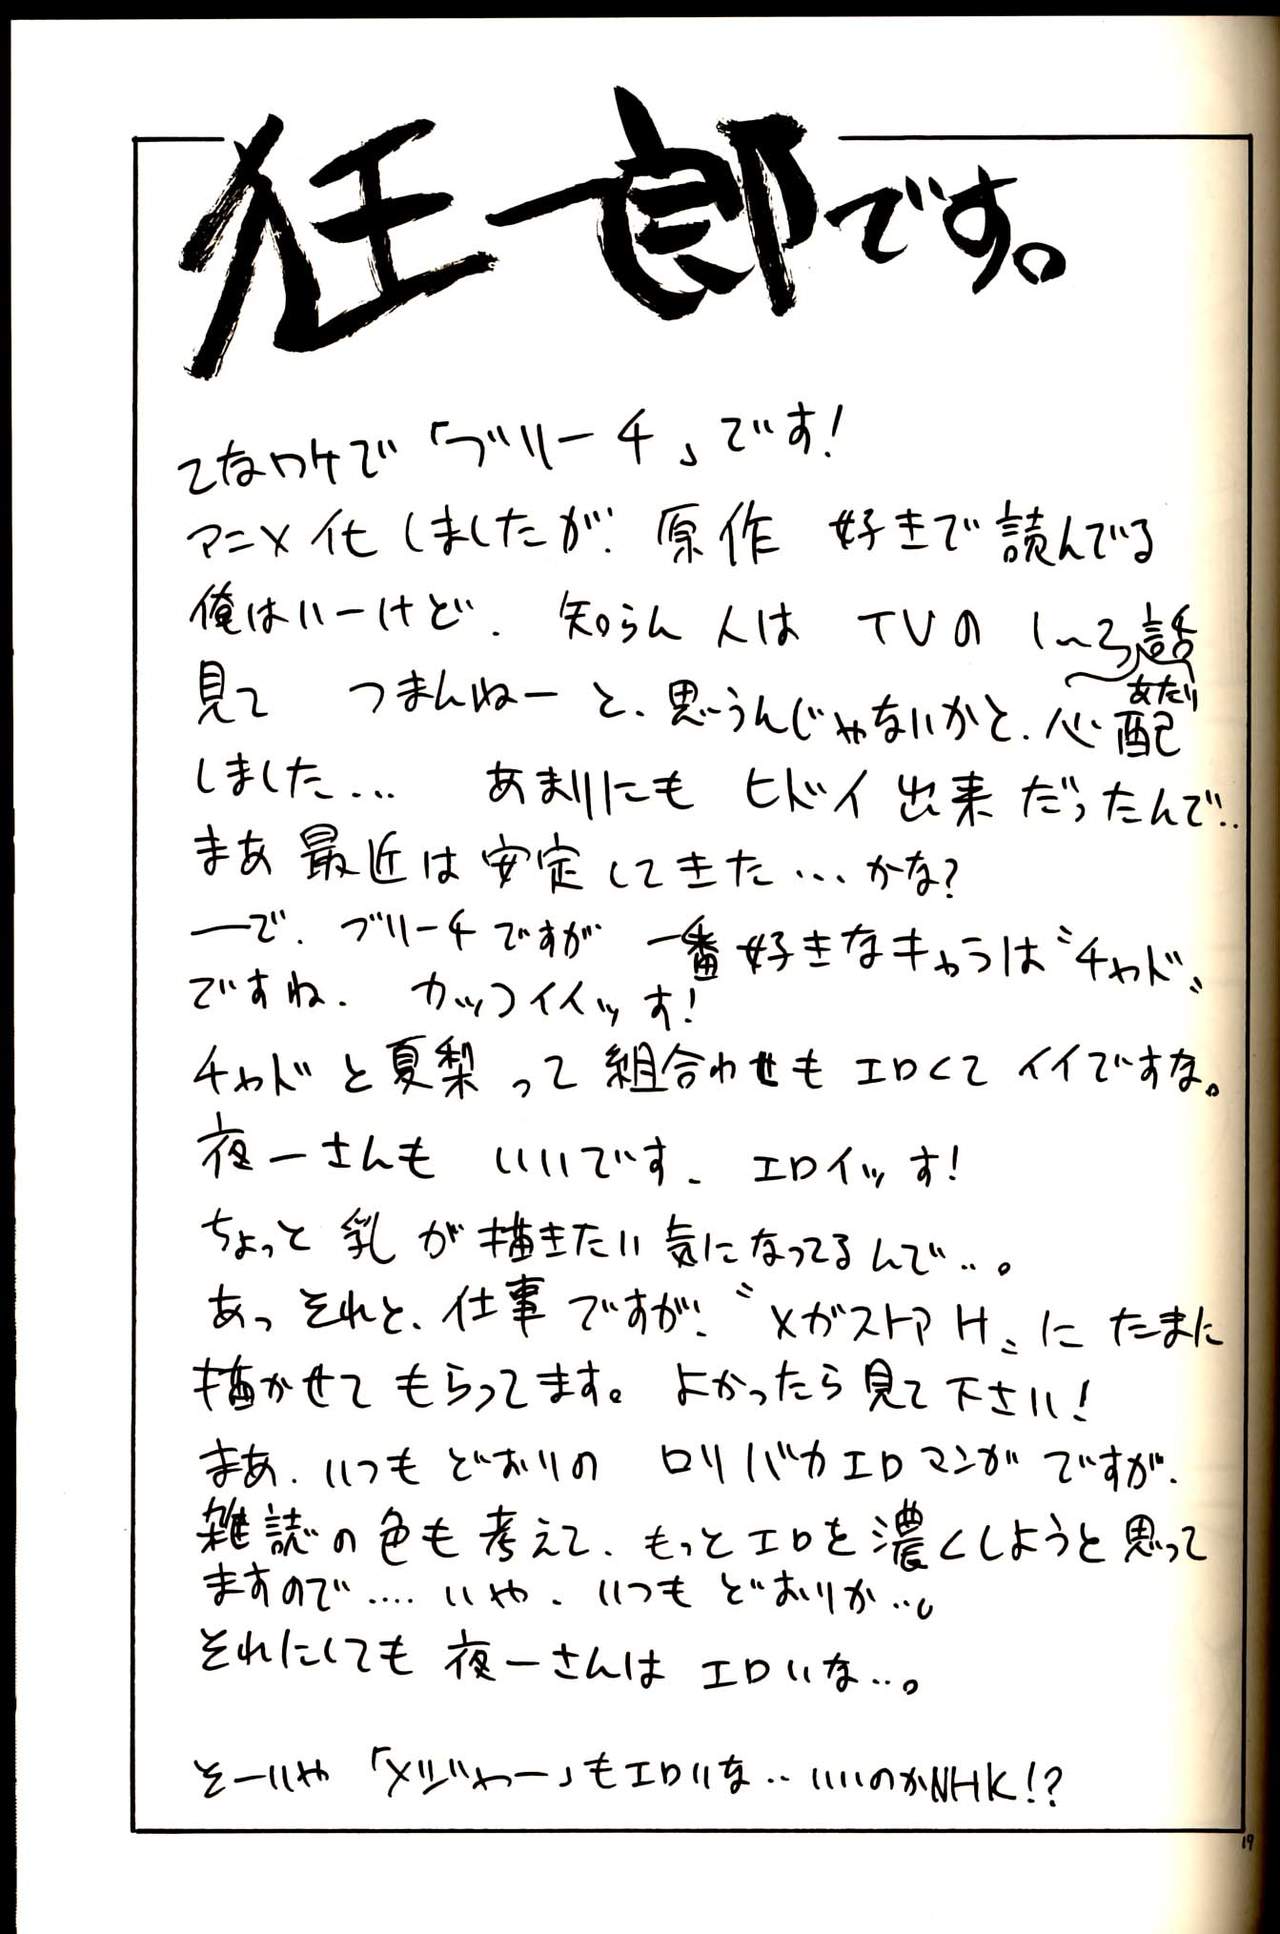 狂一郎です。
てなワケで「ブリーチ」です!
アニメ化しましたが、原作 好きで読んでる
俺はいーけど、知らん人は TVの 1~3話
あたり
見て つまんねーと、思うんじゃないかと、心配
しました… あまりにも ヒドイ出来だったんで‥
まあ最近は安定してきた…かな?
―で、ブリーチですが 一番好きなキャラは〝チャド〟
ですね、カッコイイッす!
チャドと夏梨って組合わせもエロくてイイですな。
夜一さんも いいです、エロイッす!
ちょっと乳が描きたい気になってるんで‥。
あっそれと、仕事ですが、〝メガストアH〟にたまに
描かせてもらってます。よかったら見て下さい!
まあ、いつもどおりの ロリバカエロマンガですが、
雑誌の色も考えて、もっとエロを濃くしようと思って
ますので‥‥いや、いつもどおりか‥。
それにしても夜一さんは エロいな‥。
そーいや「メジャー」もエロいな‥いいのかNHK!?
19